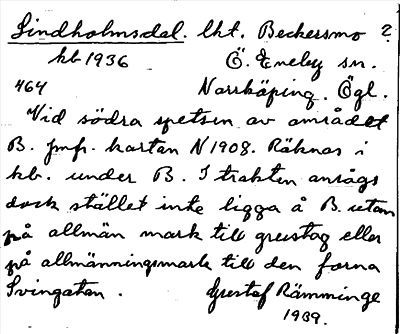 Lindholmsdal. lht. Beckersmo ?
kb 1936 Ö. Eneby sn.
464 Norrköping. Ögl.
Vid södra spetsen av området
B. jmfr. kartan N 1908. Räknas i
kb. under B. I trakten ansågs
dock stället inte ligga å B. utan
på allmän mark till grustag eller
på allmänningsmark till den forna
Svingatan. Gustaf Rämminge
1939.